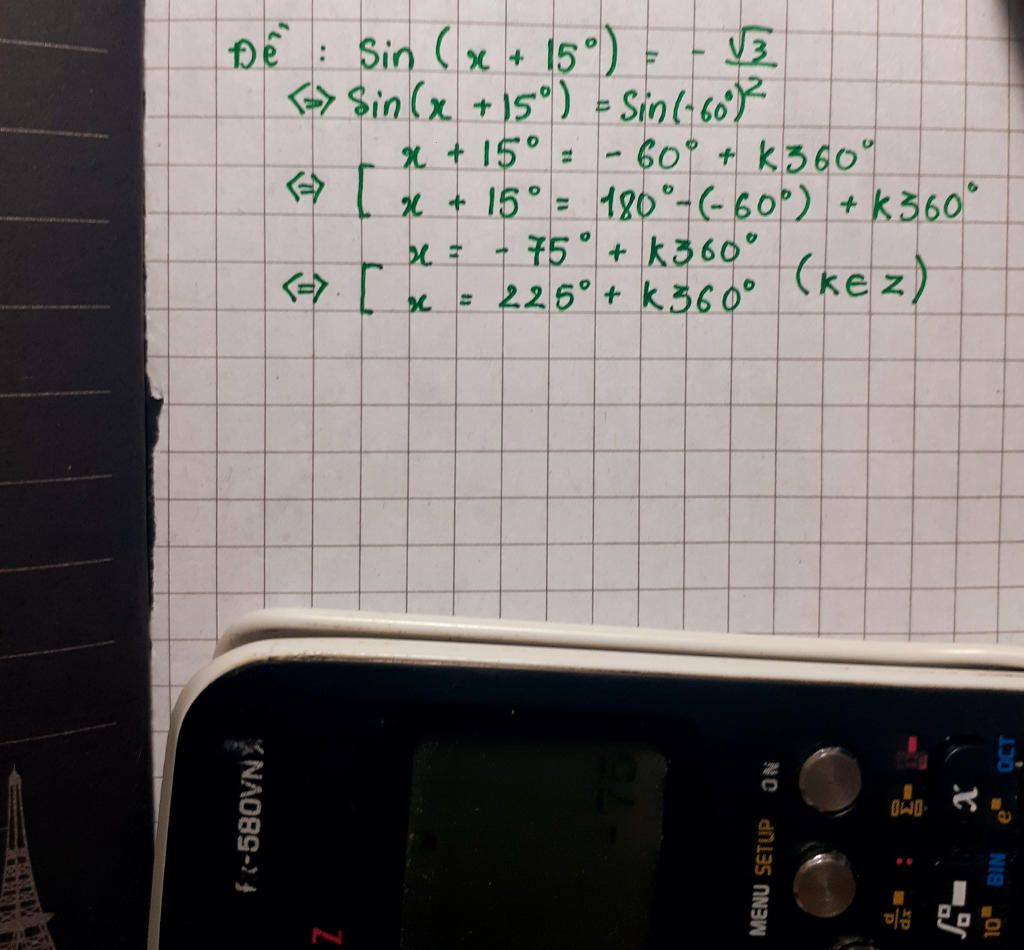 Đề : Sin ( x + 15° ) = - √3/2
<=> Sin(x + 15°) = Sin(-60°)
x + 15° = - 60° + k360°
<=> [ x + 15° = 180° - (-60°) + k360°
x = - 75° + k360°
<=> [ x = 225° + k360° (k ∈ Z)
fx-580VN X
-75
MENU SETUP ON
d/dx : Σ
∫ x
10■ BIN e■ OCT
Z